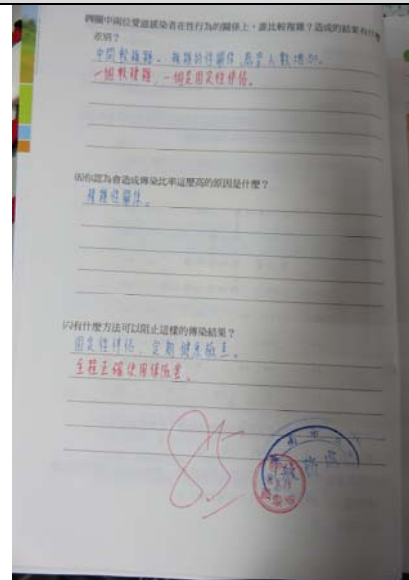 四圖中兩位愛滋感染者在性行為的關係上，誰比較複雜？造成的結果有什麼
差別？
中間較複雜。複雜的性關係，感染人數增加。
一個較複雜，一個是固定性伴侶。
㈤你認為會造成傳染比率這麼高的原因是什麼？
複雜性關係。
㈥有什麼方法可以阻止這樣的傳染結果？
固定性伴侶，定期健康檢查。
全程正確使用保險套。
85